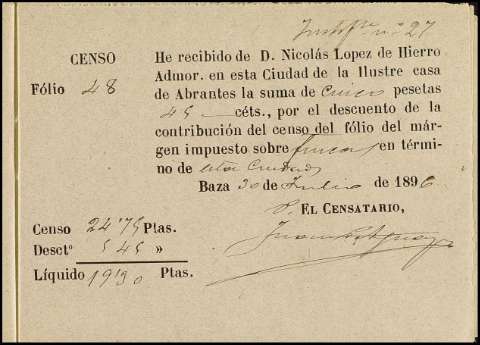 Justifte nº 27
CENSO
Fólio 48
He recibido de D. Nicolás Lopez de Hierro
Admor. en esta Ciudad de la Ilustre casa
de Abrantes la suma de Cinco pesetas
45 céts., por el descuento de la
contribución del censo del fólio del már-
gen impuesto sobre fincas en térmi-
no de esta Ciudad
Baza 30 de Julio de 1896
P. EL CENSATARIO,
Censo 24'75 Ptas.
Desctº 5 45 »
Líquido 19'30 Ptas.